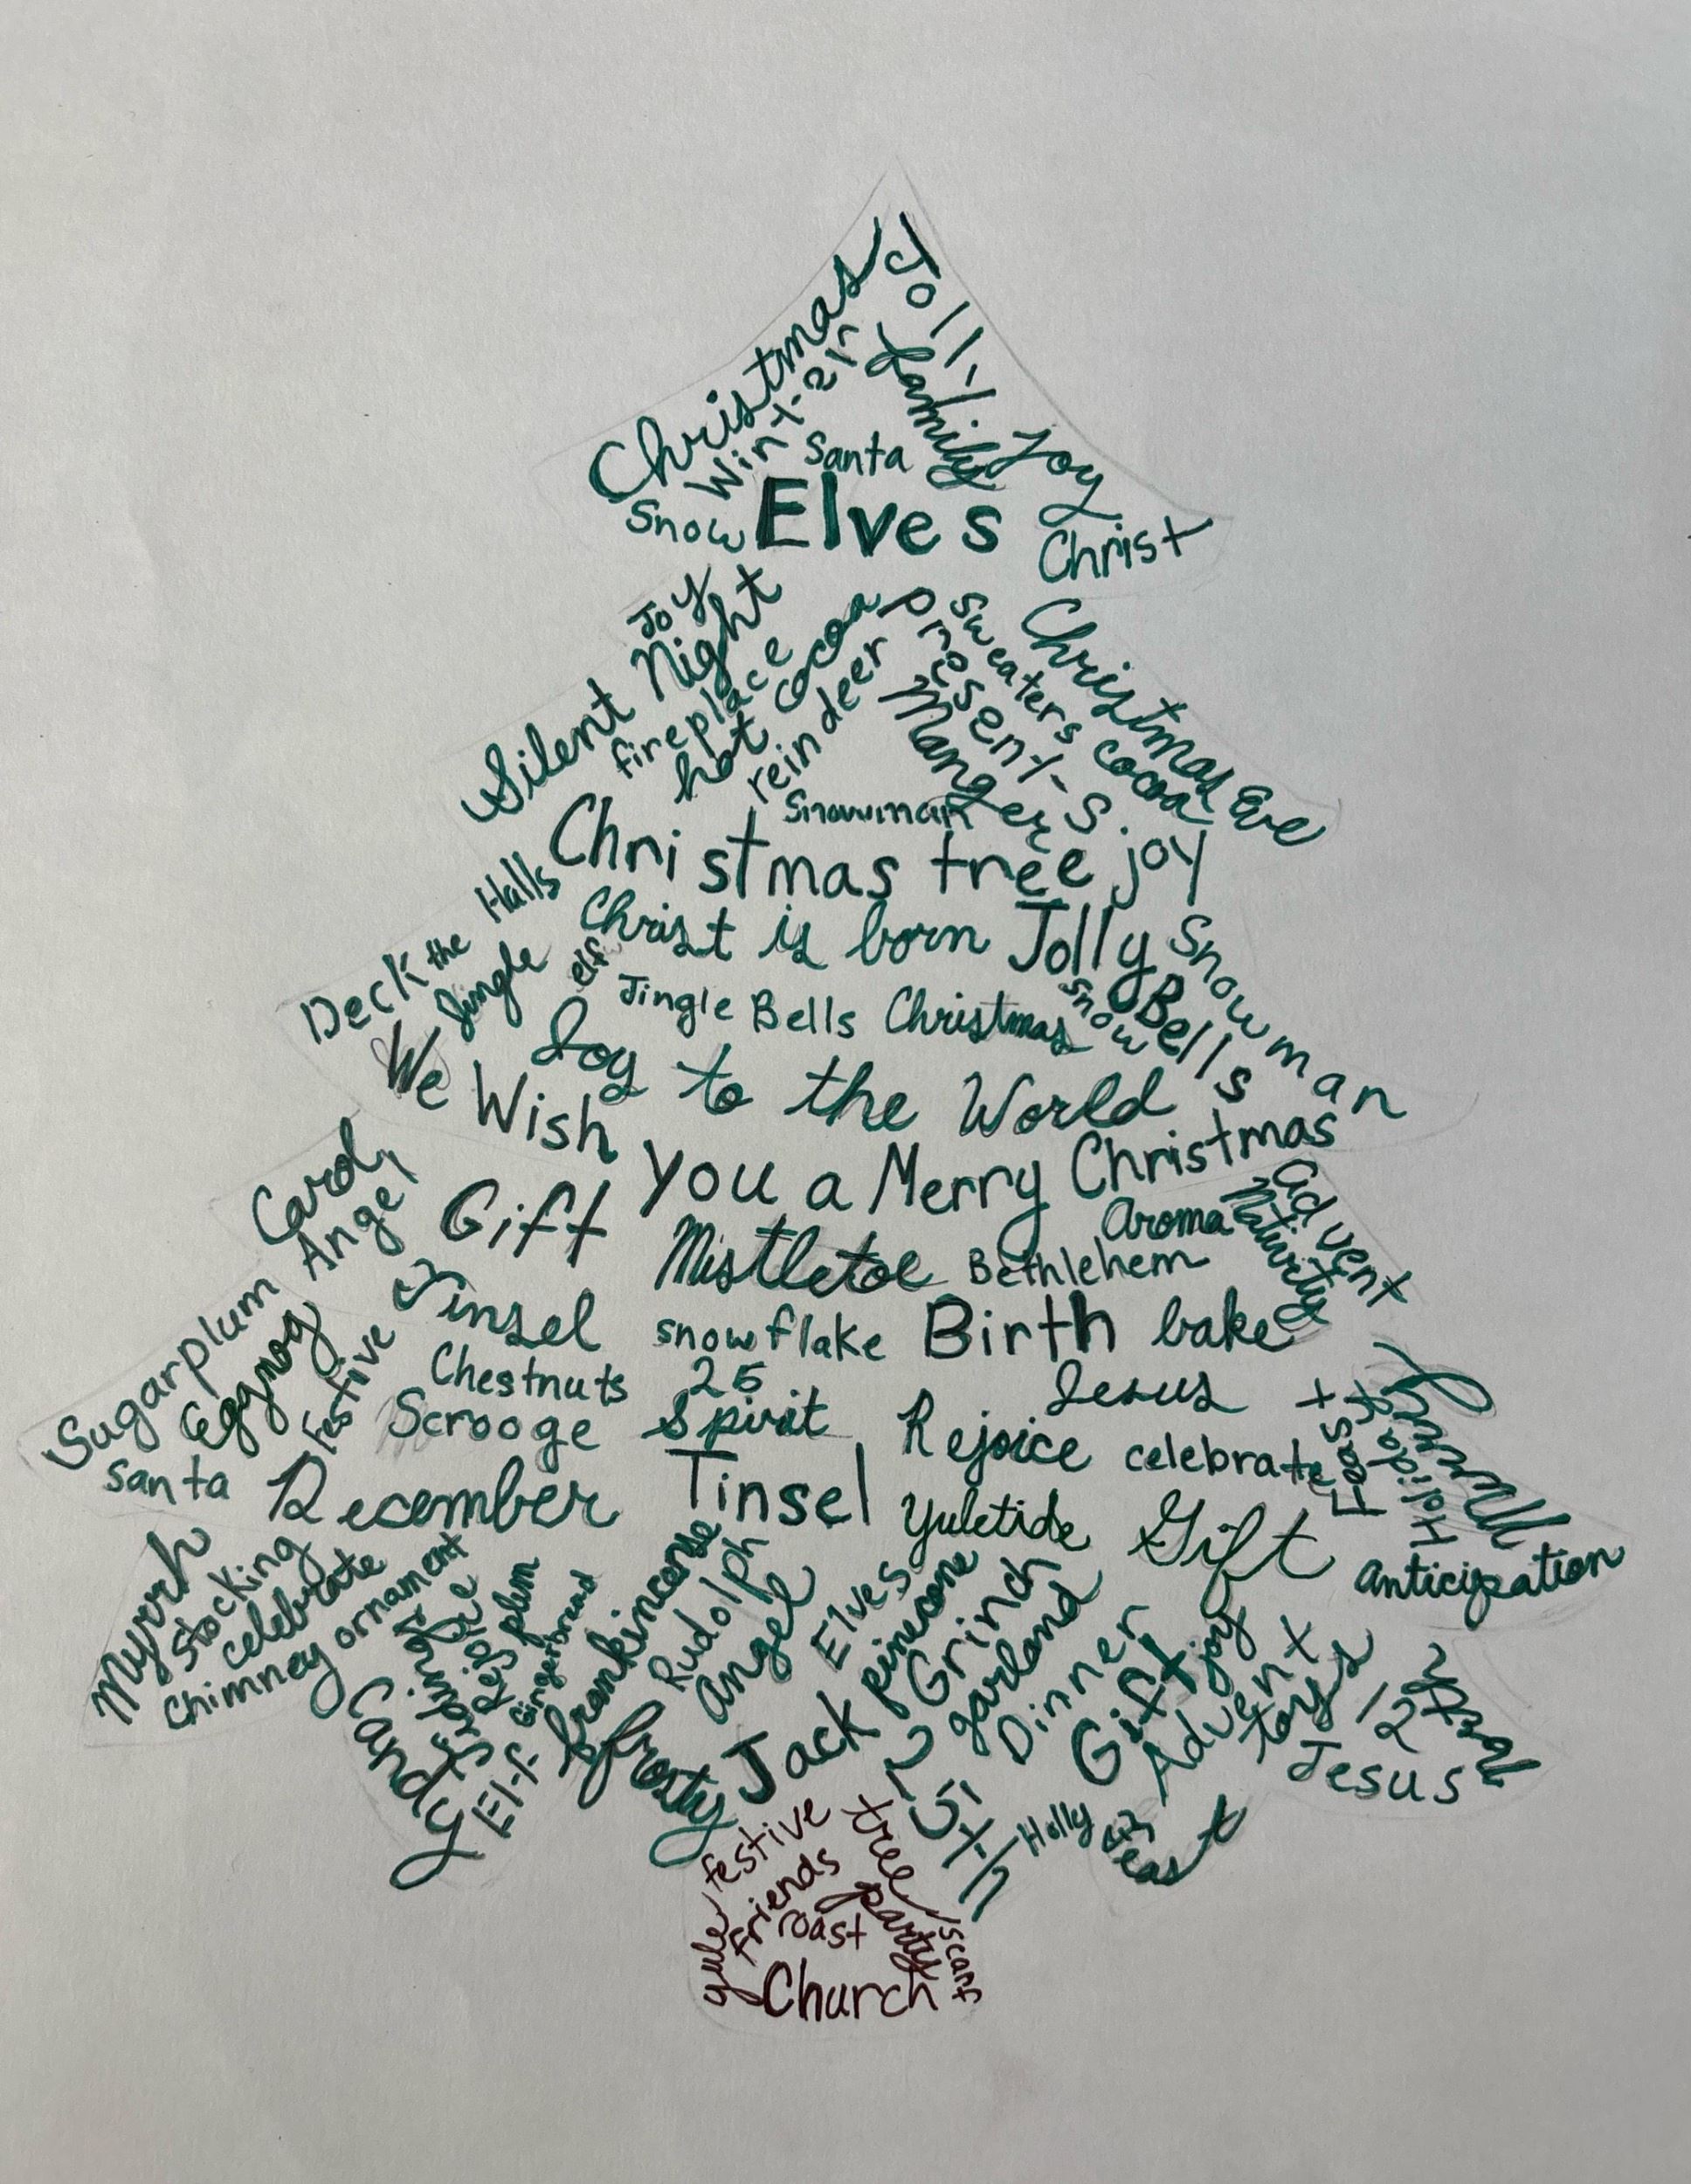 Christmas
Jolly
Winter
Family
Santa
Joy
Snow
Elves
Christ
Joy
Silent Night
fireplace
hot cocoa
reindeer
presents
sweaters
Christmas Eve
cocoa
Manger
Snowman
Christmas tree
joy
Deck the Halls
Christ is born
Jolly
Snowman
Jingle
elf
Jingle Bells
Christmas
snow
Bells
Joy to the World
We Wish You a Merry Christmas
Carol
Angel
Gift
Mistletoe
Aroma
Bethlehem
Nativity
advent
Sugarplum
Eggnog
festive
Tinsel
snowflake
Birth
bake
Chestnuts
25
Jesus
Scrooge
Spirit
Rejoice
celebrate
Feast
Holiday
Santa
December
Tinsel
Yuletide
Gift
Anticipation
Myrrh
Stocking
celebrate
Chimney
ornament
Rejoice
plum
Gingerbread
frankincense
Rudolph
angel
Elves
pinecone
Grinch
garland
Dinner
Gift
joy
Advent
toys
12
Jesus
Candy
Elf
frosty
Jack
25th
Holly
Feast
festive
tree
friends
party
roast
yule
scarf
Church